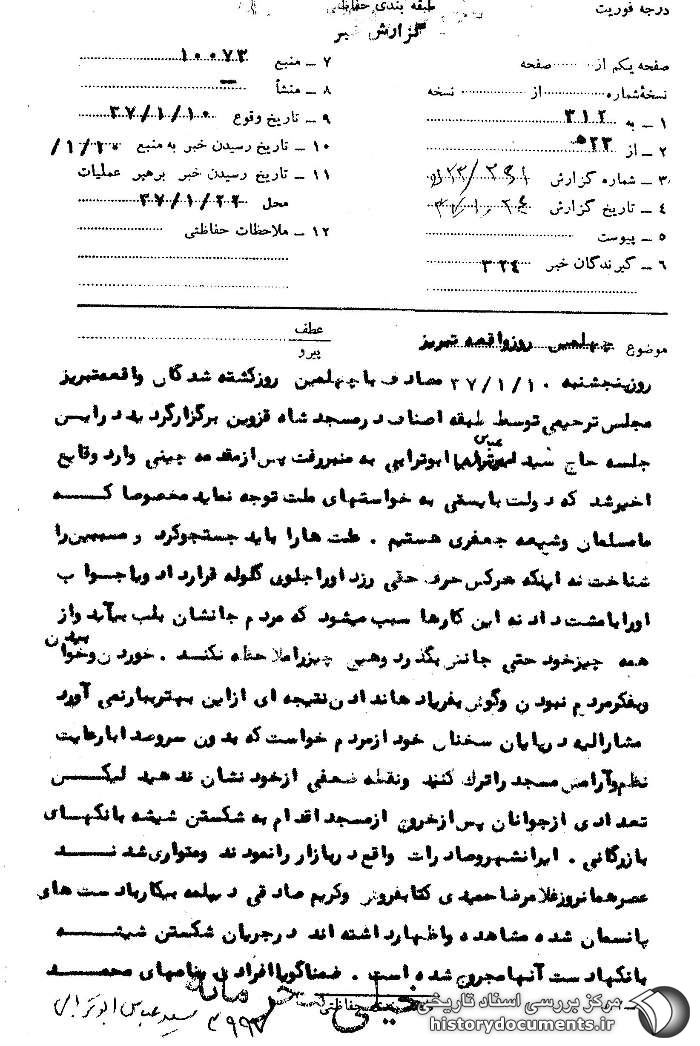 درجه فوریت
طبقه بندی حفاظتی
گزارش خبر
صفحه یکم از صفحه
نسخهٔ شماره از نسخه
۱ ــ به ۳۱۲
۲ ــ از ۵۲۳
۳ ــ شماره گزارش
۴ ــ تاریخ گزارش
۵ ــ پیوست
۶ ــ گیرندگان خبر ۳۲۴
۷ ــ منبع ۱۰۰۷۳
۸ ــ منشأ ــ
۹ ــ تاریخ وقوع ۳۷/۱/۱۰
۱۰ ــ تاریخ رسیدن خبر به منبع
۱۱ ــ تاریخ رسیدن خبر برهبر عملیات
محل ۳۷/۱/۲۲
۱۲ ــ ملاحظات حفاظتی
موضوع چهلمین روز واقعه تبریز
عطف
پیرو
روز پنجشنبه ۳۷/۱/۱۰ مصادف با چهلمین روز کشته شدگان واقعه تبریز
مجلس ترحیمی توسط طبقه اصناف در مسجد شاه قزوین برگزار گردید در این
جلسه حاج سید عباس ابوترابی به منبر رفت پس از مقدمه چینی وارد وقایع
اخیر شد که دولت بایستی به خواستهای ملت توجه نماید مخصوصا که
ما مسلمان و شیعه جعفری هستیم . علت ها را باید جستجو کرد و مسببین را
شناخت نه اینکه هرکس حرف حقی زد او را جلوی گلوله قرار داد و یا جواب
او را با مشت داد نه این کارها سبب میشود که مردم جانشان بلب بیآید و از
همه چیز خود حتی جانش بگذرد و هیچ چیز را ملاحظه نکند . خوردن و خوابیدن
و بفکر مردم نبودن و گوش بفریادها ندادن نتیجه ای از این بهتر ببار نمی آورد
مشارالیه در پایان سخنان خود از مردم خواست که بدون سر و صدا با رعایت
نظم و آرامش مسجد را ترک کنید و نقطه ضعفی از خود نشان ندهید لیکن
تعدادی از جوانان پس از خروج از مسجد اقدام به شکستن شیشه بانکهای
بازرگانی . ایرانشهر و صادرات واقع در بازار را نمودند و متواری شدند
عصر همانروز غلامرضا حمیدی کتابفروش و کریم صادقی دیپلمه بیکار با دست های
پانسمان شده مشاهده و اظهار داشته اند در جریان شکستن شیشه
بانکها دست آنها مجروح شده است . ضمنا گویا افرادی بنامهای محمد
خیلی محرمانه
سید عباس ابوترابی
مرکز بررسی اسناد تاریخی
historydocuments.ir